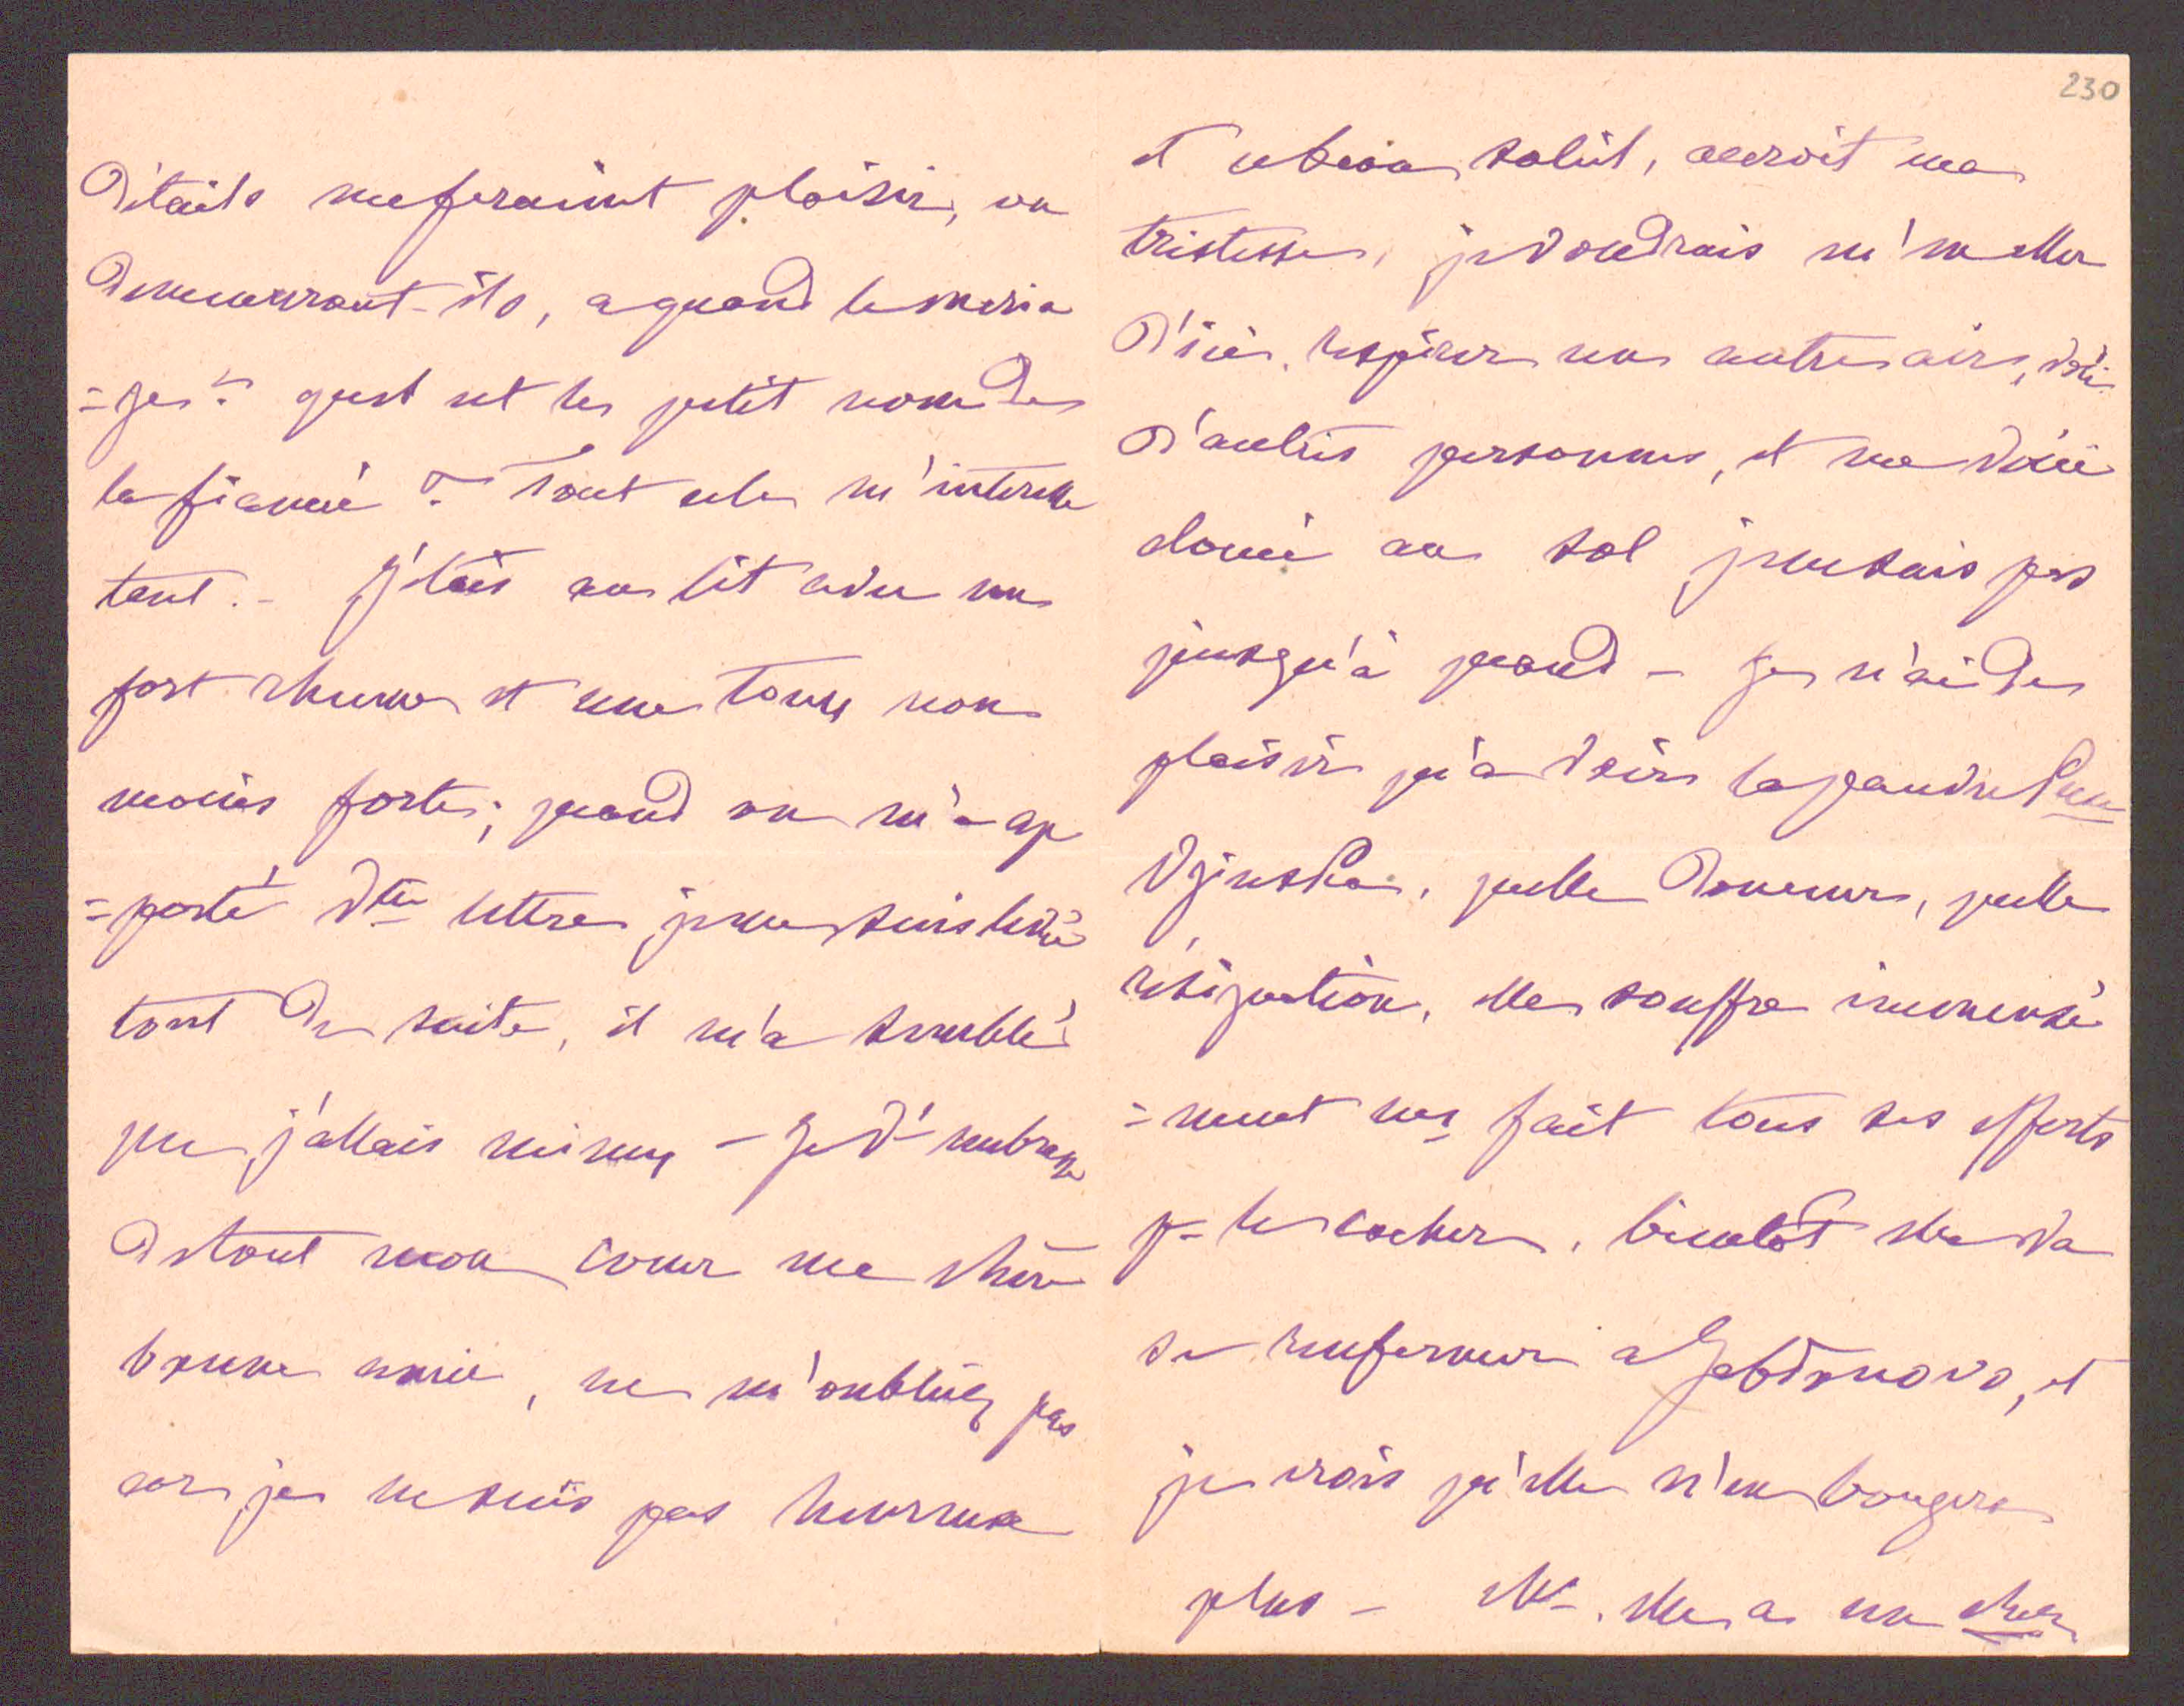 détails me feraient plaisir, ou
demeurront-ils, a quand le maria
=ge? quel est le petit nom de
la fiancée? Tout cela m'interesse
tant. - J'étais au lit avec un
fort rhume et une toux non
moins forte; quand on m'a ap
=porté vtre lettre je me suis levée
tout de suite, il m'a semblé
que j'allais mieux - Je v. embrasse
de tout mon coeur ma chère
bonne amie, ne m'oubliez pas
car je ne suis pas heureuse
230
et ce beau soleil, accroit ma
tristesse, je voudrais m'en aller
d'ici, respirer un autre air, voir
d'autres personnes, et me voici
clouée au sol je ne sais pas
jusqu'à quand - Je n'ai de
plaisir qu'a voir la pauvre
quelle douceur, quelle
résignation, elle souffre immensé
=ment mais fait tous ses efforts
p= le cacher, bientôt elle va
se renfermer a et
je crois qu'elle n'en bougera
plus - elle a un cher